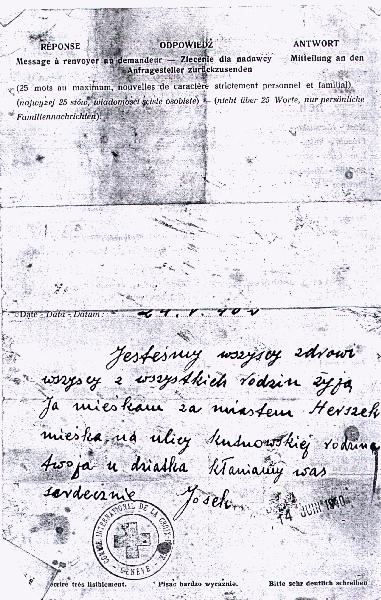 RÉPONSE ODPOWIEDŹ ANTWORT
Message à renvoyer au demandeur — Zlecenie dla nadawcy Mitteilung an den
Anfragesteller zurückzusenden
(25 mots au maximum, nouvelles de caractère strictement personnel et familial)
(najwyżej 25 słów, wiadomości ściśle osobiste) — (nicht über 25 Worte, nur persönliche
Familiennachrichten).
Date - Data - Datum :
Jesteśmy wszyscy zdrowi
wszyscy z wszystkich rodzin żyją
Ja mieskam za miastem Herszek
mieska na ulicy Kutnowskiej rodzina
twoja u dziatka kłaniamy was
serdecznie Josek
COMITÉ INTERNATIONAL DE LA CROIX
GENÈVE
14 JUIN 1940
écrire très lisiblement. Pisać bardzo wyraźnie. Bitte sehr deutlich schreiben